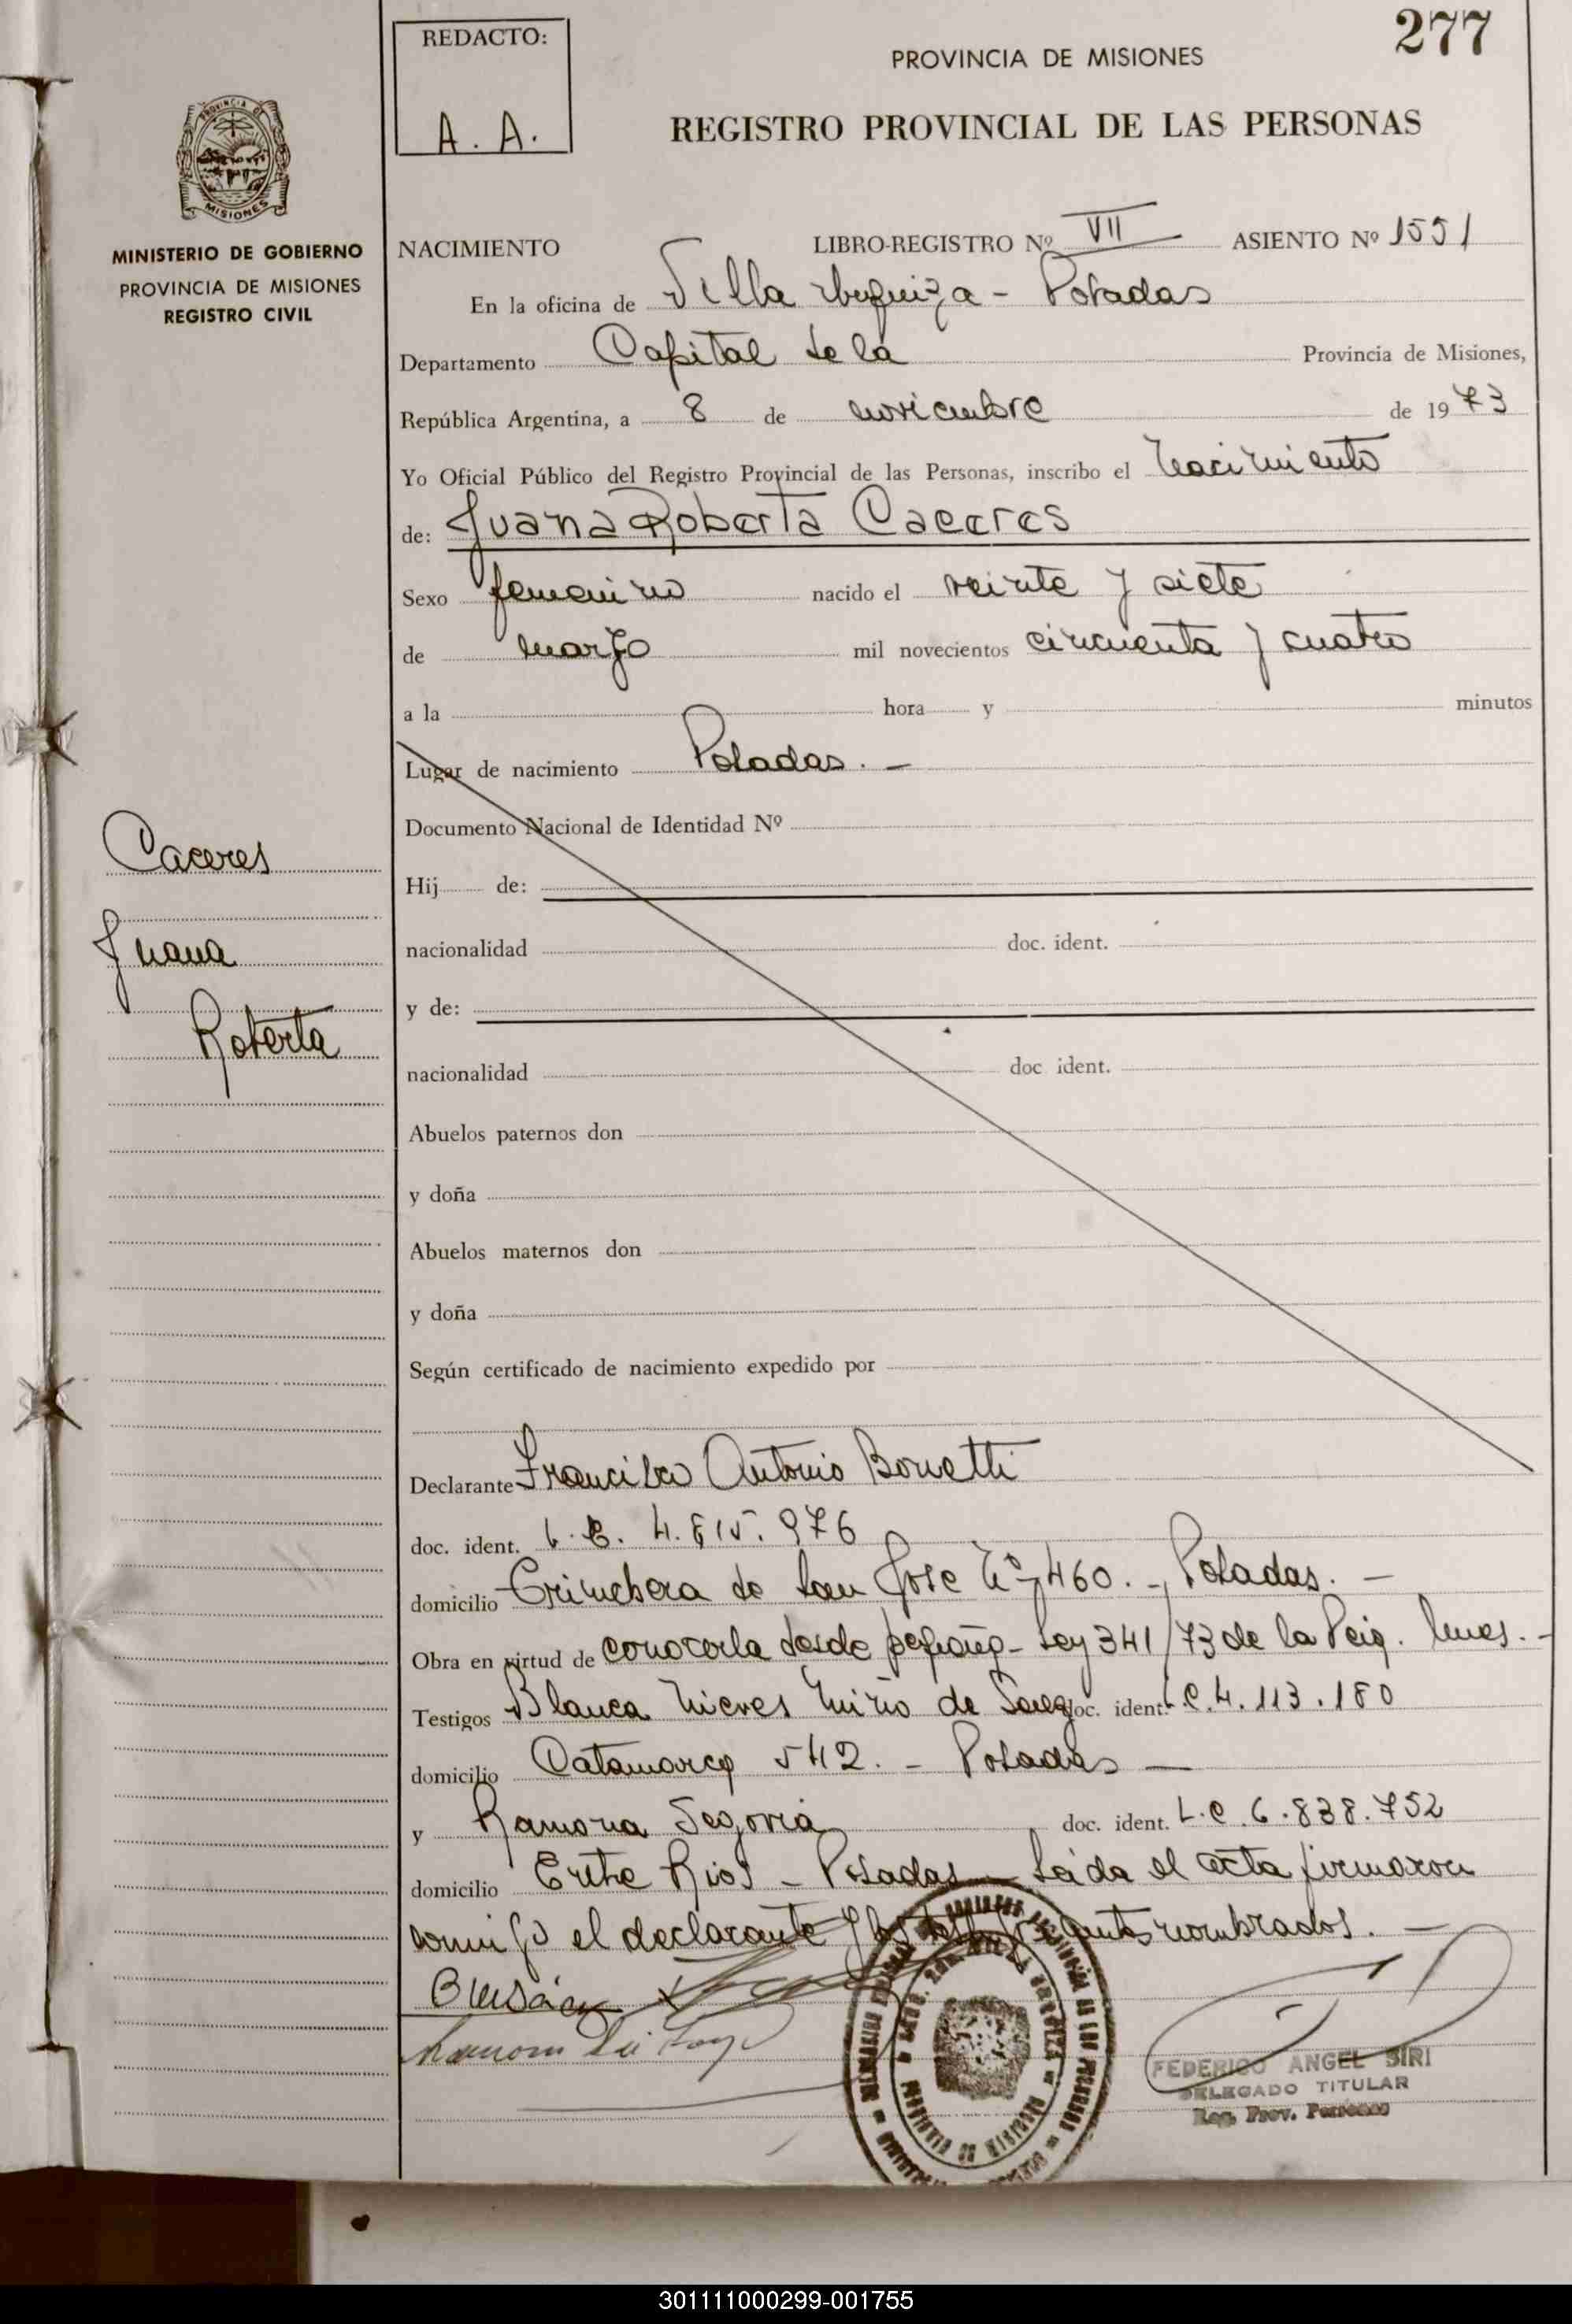 277
REDACTO:
A. A.
PROVINCIA DE MISIONES
REGISTRO PROVINCIAL DE LAS PERSONAS
PROVINCIA DE
MISIONES
MINISTERIO DE GOBIERNO
PROVINCIA DE MISIONES
REGISTRO CIVIL
NACIMIENTO LIBRO-REGISTRO Nº VII ASIENTO Nº 1551
En la oficina de Villa Urquiza - Posadas
Departamento Capital de la Provincia de Misiones,
República Argentina, a 8 de noviembre de 1973
Yo Oficial Público del Registro Provincial de las Personas, inscribo el Nacimiento
de: Juana Roberta Caceres
Sexo femenino nacido el veinte y siete
de marzo mil novecientos cincuenta y cuatro
a la hora y minutos
Lugar de nacimiento Posadas. -
Documento Nacional de Identidad Nº
Caceres
Hij de:
Juana
nacionalidad doc. ident.
y de:
Roberta
nacionalidad doc ident.
Abuelos paternos don
y doña
Abuelos maternos don
y doña
Según certificado de nacimiento expedido por
Declarante Francisco Antonio Bonetti
doc. ident. 976
domicilio Trinchera de San Jose Nº 460. - Posadas. -
Obra en virtud de conocerla desde pequeña - Ley 341/73 de la Pcia. Mnes. -
Testigos Blanca Nieves Miño de doc. ident. L.C. 4.113.180
domicilio Catamarca 542. - Posadas -
y Ramona Segovia doc. ident. L.C 6.838.752
domicilio Entre Rios - Posadas - Leida el acta firmaron
conmigo el declarante y los testigos antes nombrados. -
FEDERICO ANGEL SIRI
DELEGADO TITULAR
Reg. Prov. Personas
301111000299-001755